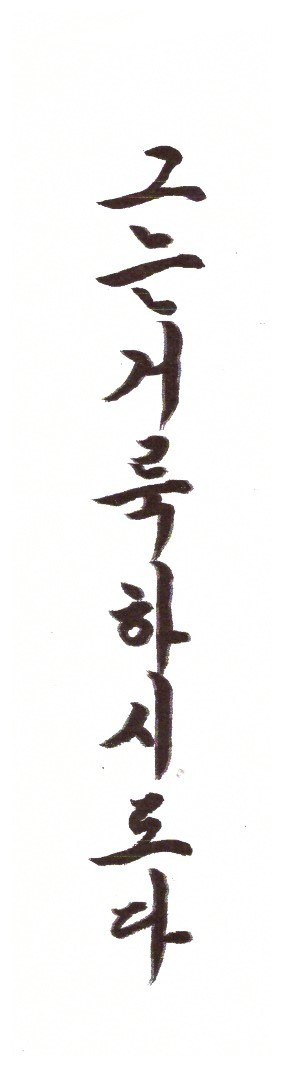 그는거룩하시도다